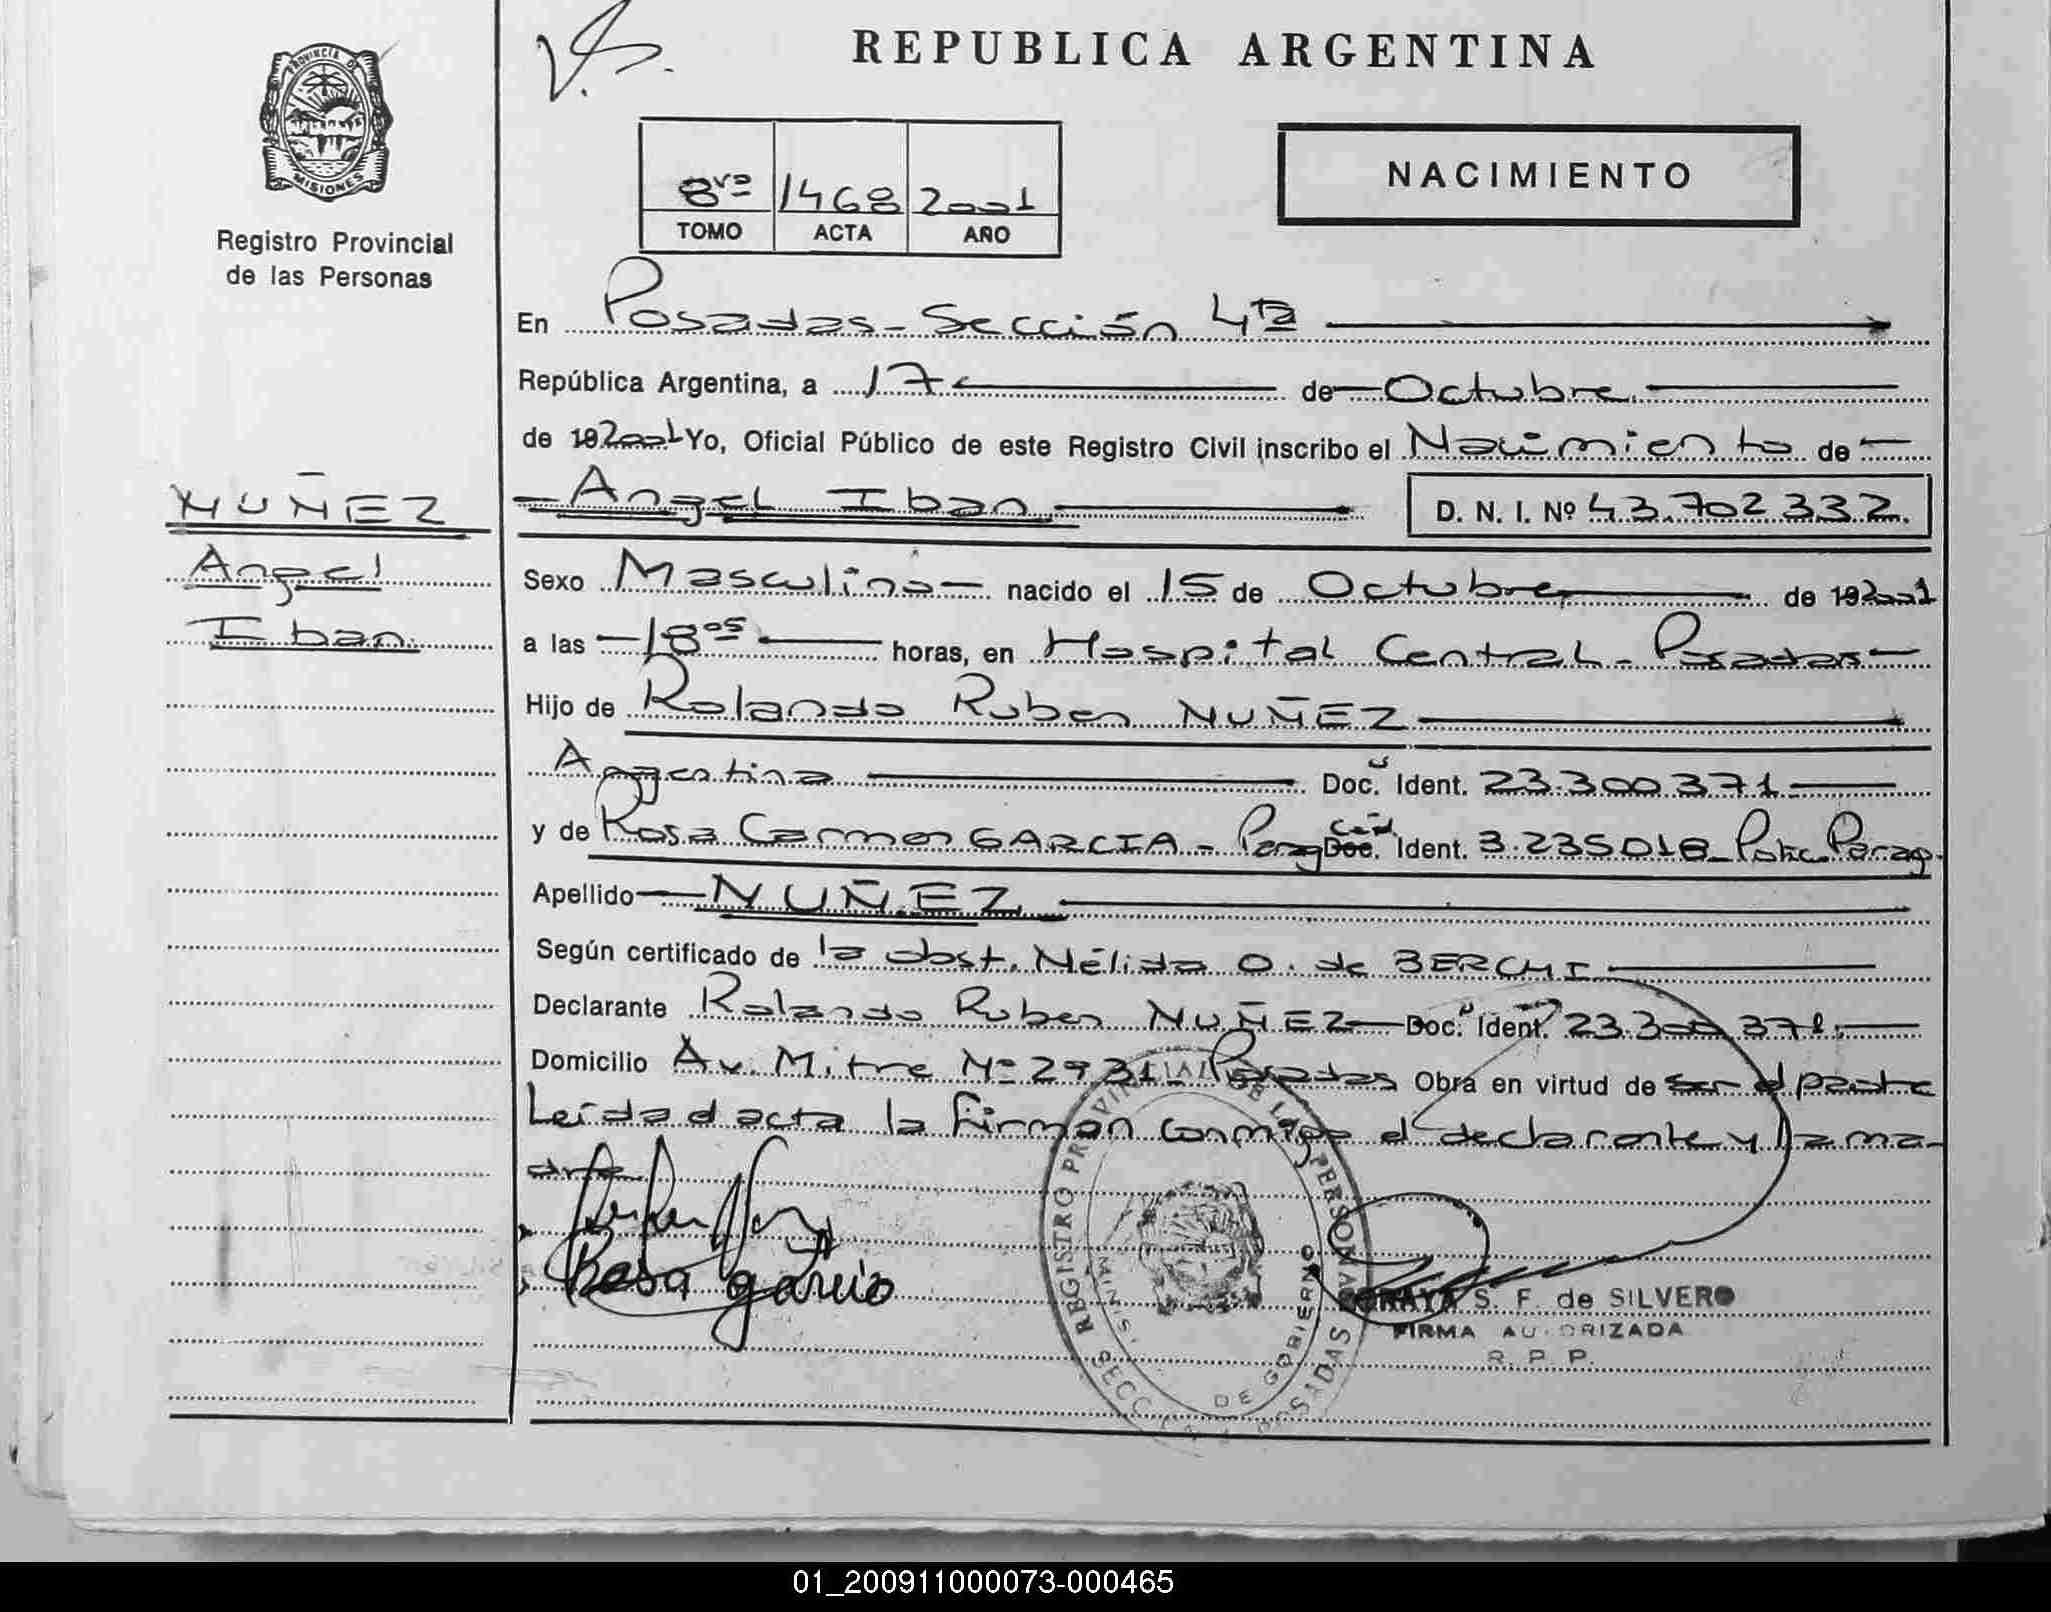 REPUBLICA ARGENTINA
PROVINCIA DE
MISIONES
Registro Provincial
de las Personas
8vo 1468 2001
TOMO ACTA AÑO
NACIMIENTO
En Posadas - Sección 4ta
República Argentina, a 17 de Octubre
de 192001 Yo, Oficial Público de este Registro Civil inscribo el Nacimiento de
Angel Iban D. N. I. Nº 43.702.332
NUÑEZ
Angel
Iban
Sexo Masculino nacido el 15 de Octubre de 192001
a las 18os horas, en Hospital Central - Posadas
Hijo de Rolando Ruben NUÑEZ
Argentina Doc. Ident. 23.300.371
y de Rosa Carmen GARCIA - Parag Ced Doc. Ident. 3.235018 Polic. Parag.
Apellido NUÑEZ
Según certificado de la obst. Nélida O. de BERCHI
Declarante Rolando Ruben NUÑEZ Doc. Ident. 23.300.371
Domicilio Av. Mitre Nº 2931 - Posadas Obra en virtud de ser el padre
Leída el acta la firman conmigo el declarante y la ma-
dre
Rosa garcia
REGISTRO PROVINCIAL DE LAS PERSONAS
DE GOBIERNO
SECC 4 POSADAS
SORAYA S. F. de SILVERO
FIRMA AUTORIZADA
R. P. P.
01_200911000073-000465